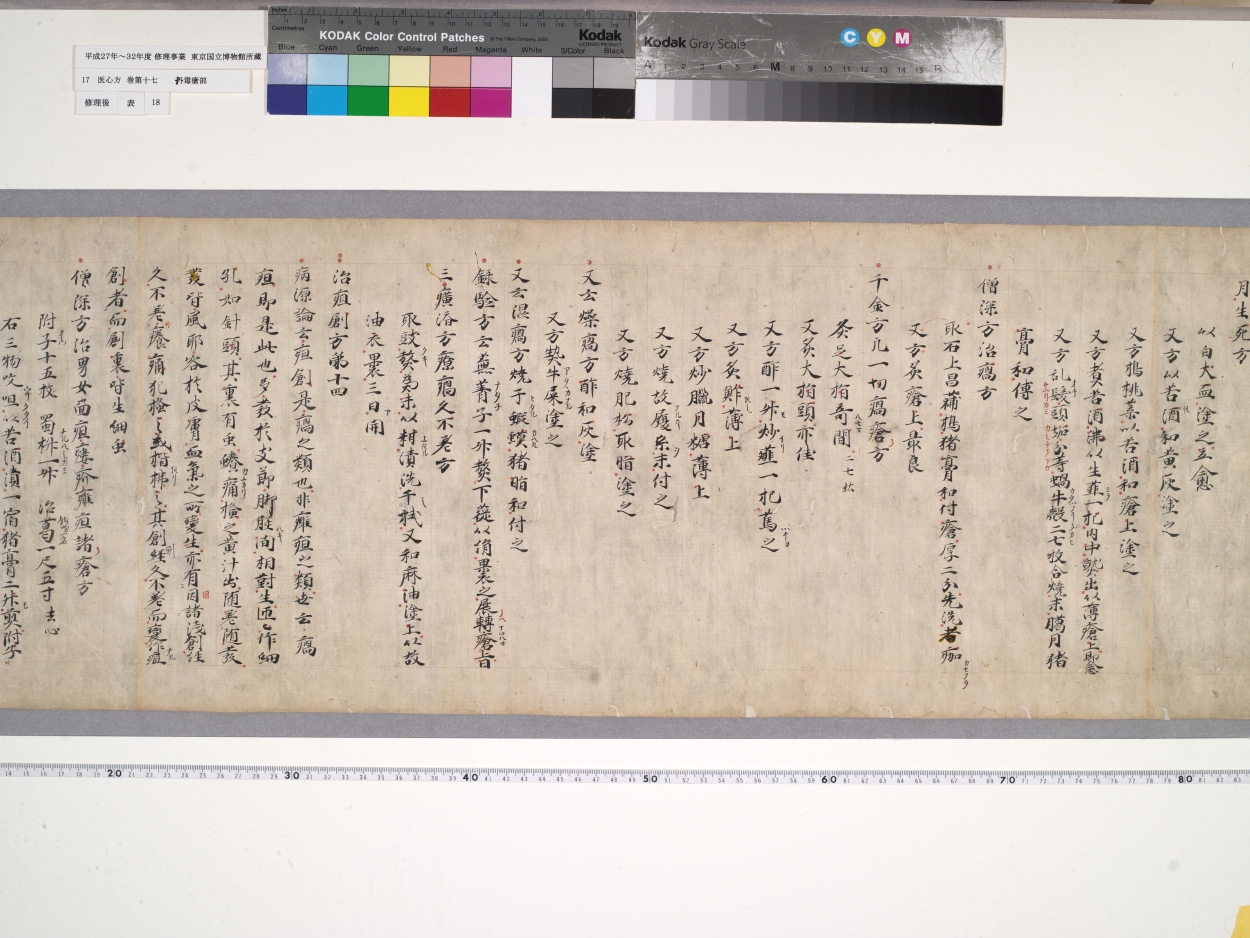 平成27年～32年度 修理事業 東京国立博物館所蔵
17 医心方 巻第十七 丹毒瘡部
修理後 表 18
KODAK Color Control Patches
© The Tiffen Company, 2000
Kodak
LICENSED PRODUCT
Inches
Centimetres
Blue Cyan Green Yellow Red Magenta White 3/Color Black
Kodak Gray Scale
C Y M
A 1 2 3 4 5 6 M 8 9 10 11 12 13 14 15 B
月生死方
以白犬血塗之立愈
又方以苦酒和黄灰塗之
又方搗桃葉以苦酒和瘡上塗之
又方煮苦酒沸以生韮一把内中熟出以薄瘡上即愈
又方乱髪頭垢分等蝸牛殻二七枚合焼末臈月猪
膏和傅之
僧深方治瘑方
取石上昌蒲搗猪膏和付瘡厚二分先洗着痂
又方灸瘡上最良
千金方凡一切瘑瘡方
灸足大指奇間二七壮
又灸大指頭亦佳
又方酢一升炒薤一把薦之
又方灸鮓薄上
又方炒臘月糖薄上
又方焼故履系末付之
又方焼肥松取脂塗之
又云燥瘑方酢和灰塗
又方熱牛屎塗之
又云湿瘑方焼干蝦蟆猪脂和付之
録驗方云蕪菁子一升熬下篵以絹裹之展轉瘡上
三膏済方療瘑久不差方
取豉熬為末以籿漬洗干拭又和麻油塗上以故
油衣裹三日開
治疽創方第十四
病源論云疽創是瘑之類也非癰疽之類世云瘑
疽即是此也多發於支節脚脛間相對生匝匝作細
孔如針頭其裏有虫痒痛搔之黄汁出随差随發
發皆風耶客於皮膚血氣之所變生亦有因諸浅創経
久不差癢痛犯搔之或揩拂之其創経久不差而變作疽
創者而創裏皆生細虫
僧深方治男女面疽痤疥癰疽諸瘡方
附子十五枚 蜀椒一升 冶葛一尺五寸去心
右三物㕮咀以苦酒漬一宿猪膏二升煎附子
20 30 40 50 60 70 80